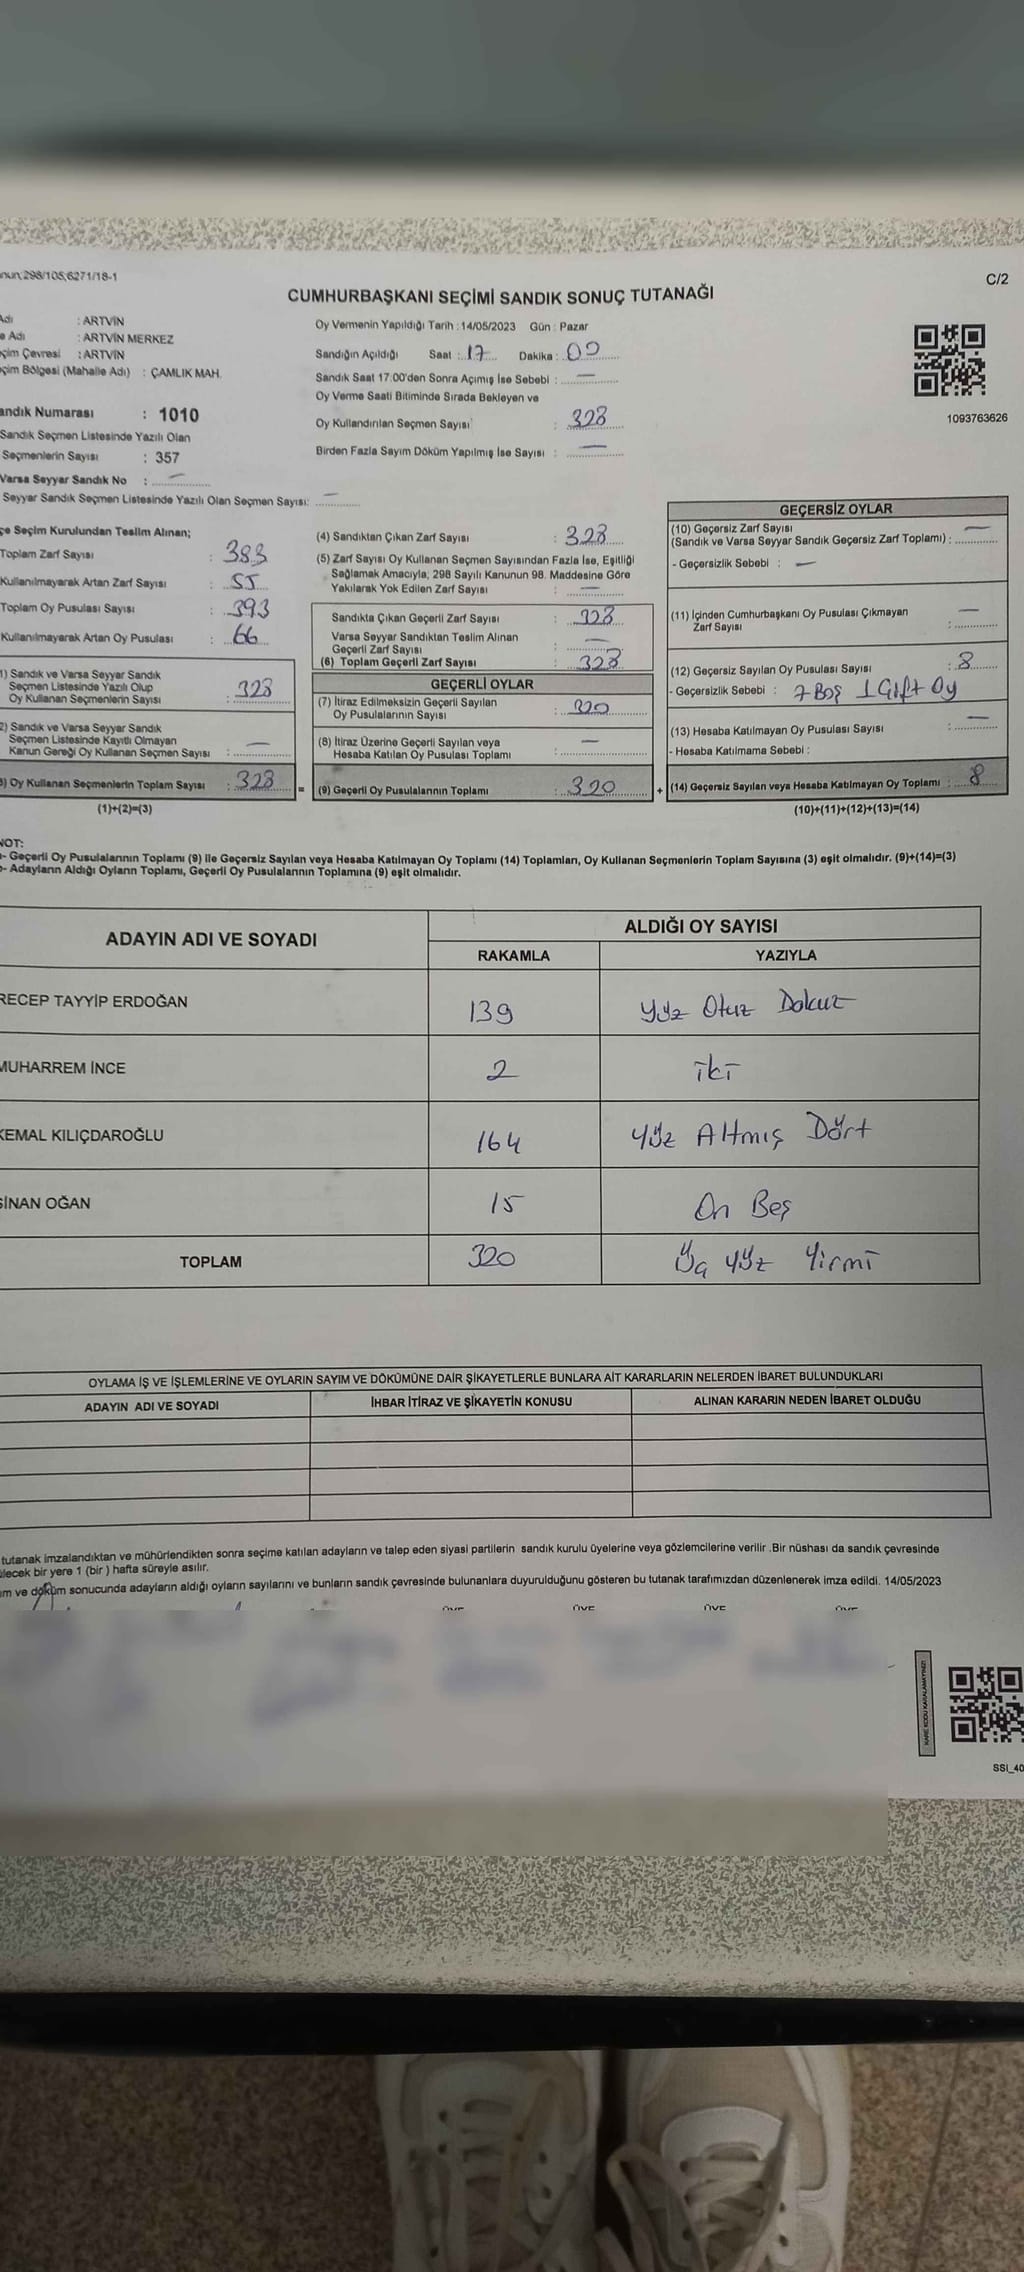 nun,298/105,6271/18-1
C/2
CUMHURBAŞKANI SEÇİMİ SANDIK SONUÇ TUTANAĞI
Adı : ARTVİN
e Adı : ARTVİN MERKEZ
çim Çevresi : ARTVİN
çim Bölgesi (Mahalle Adı) : ÇAMLIK MAH.
andık Numarası : 1010
Sandık Seçmen Listesinde Yazılı Olan
Seçmenlerin Sayısı : 357
Varsa Seyyar Sandık No : —
Seyyar Sandık Seçmen Listesinde Yazılı Olan Seçmen Sayısı: —
Oy Vermenin Yapıldığı Tarih : 14/05/2023 Gün : Pazar
Sandığın Açıldığı Saat : 17 Dakika : 00
Sandık Saat 17:00'den Sonra Açımış İse Sebebi : —
Oy Verme Saati Bitiminde Sırada Bekleyen ve
Oy Kullandırılan Seçmen Sayısı : 328
Birden Fazla Sayım Döküm Yapılmış İse Sayısı : —
1093763626
çe Seçim Kurulundan Teslim Alınan;
Toplam Zarf Sayısı : 383
Kullanılmayarak Artan Zarf Sayısı : 55
Toplam Oy Pusulası Sayısı : 393
Kullanılmayarak Artan Oy Pusulası : 66
1) Sandık ve Varsa Seyyar Sandık
Seçmen Listesinde Yazılı Olup
Oy Kullanan Seçmenlerin Sayısı : 328
2) Sandık ve Varsa Seyyar Sandık
Seçmen Listesinde Kayıtlı Olmayan
Kanun Gereği Oy Kullanan Seçmen Sayısı : —
3) Oy Kullanan Seçmenlerin Toplam Sayısı : 328
(1)+(2)=(3)
(4) Sandıktan Çıkan Zarf Sayısı : 328
(5) Zarf Sayısı Oy Kullanan Seçmen Sayısından Fazla İse, Eşitliği
Sağlamak Amacıyla; 298 Sayılı Kanunun 98. Maddesine Göre
Yakılarak Yok Edilen Zarf Sayısı : —
Sandıkta Çıkan Geçerli Zarf Sayısı : 328
Varsa Seyyar Sandıktan Teslim Alınan
Geçerli Zarf Sayısı : —
(6) Toplam Geçerli Zarf Sayısı : 328
GEÇERLİ OYLAR
(7) İtiraz Edilmeksizin Geçerli Sayılan
Oy Pusulalarının Sayısı : 320
(8) İtiraz Üzerine Geçerli Sayılan veya
Hesaba Katılan Oy Pusulası Toplamı : —
= (9) Geçerli Oy Pusulalarının Toplamı : 320
GEÇERSİZ OYLAR
(10) Geçersiz Zarf Sayısı
(Sandık ve Varsa Seyyar Sandık Geçersiz Zarf Toplamı) : —
- Geçersizlik Sebebi : —
(11) İçinden Cumhurbaşkanı Oy Pusulası Çıkmayan
Zarf Sayısı : —
(12) Geçersiz Sayılan Oy Pusulası Sayısı : 8
- Geçersizlik Sebebi : 7 Boş 1 Çift Oy
(13) Hesaba Katılmayan Oy Pusulası Sayısı : —
- Hesaba Katılmama Sebebi :
+ (14) Geçersiz Sayılan veya Hesaba Katılmayan Oy Toplamı : 8
(10)+(11)+(12)+(13)=(14)
NOT:
- Geçerli Oy Pusulalarının Toplamı (9) ile Geçersiz Sayılan veya Hesaba Katılmayan Oy Toplamı (14) Toplamları, Oy Kullanan Seçmenlerin Toplam Sayısına (3) eşit olmalıdır. (9)+(14)=(3)
- Adayların Aldığı Oyların Toplamı, Geçerli Oy Pusulalarının Toplamına (9) eşit olmalıdır.
ADAYIN ADI VE SOYADI ALDIĞI OY SAYISI
RAKAMLA YAZIYLA
RECEP TAYYİP ERDOĞAN 139 Yüz Otuz Dokuz
MUHARREM İNCE 2 iki
KEMAL KILIÇDAROĞLU 164 Yüz Altmış Dört
SİNAN OĞAN 15 On Beş
TOPLAM 320 Üç Yüz Yirmi
OYLAMA İŞ VE İŞLEMLERİNE VE OYLARIN SAYIM VE DÖKÜMÜNE DAİR ŞİKAYETLERLE BUNLARA AİT KARARLARIN NELERDEN İBARET BULUNDUKLARI
ADAYIN ADI VE SOYADI İHBAR İTİRAZ VE ŞİKAYETİN KONUSU ALINAN KARARIN NEDEN İBARET OLDUĞU
tutanak imzalandıktan ve mühürlendikten sonra seçime katılan adayların ve talep eden siyasi partilerin sandık kurulu üyelerine veya gözlemcilerine verilir .Bir nüshası da sandık çevresinde
ilecek bir yere 1 (bir ) hafta süreyle asılır.
ım ve döküm sonucunda adayların aldığı oyların sayılarını ve bunların sandık çevresinde bulunanlara duyurulduğunu gösteren bu tutanak tarafımızdan düzenlenerek imza edildi. 14/05/2023
ÜYE ÜYE ÜYE ÜYE
KARE KODU KARALAMAYINIZ!
SSI_40